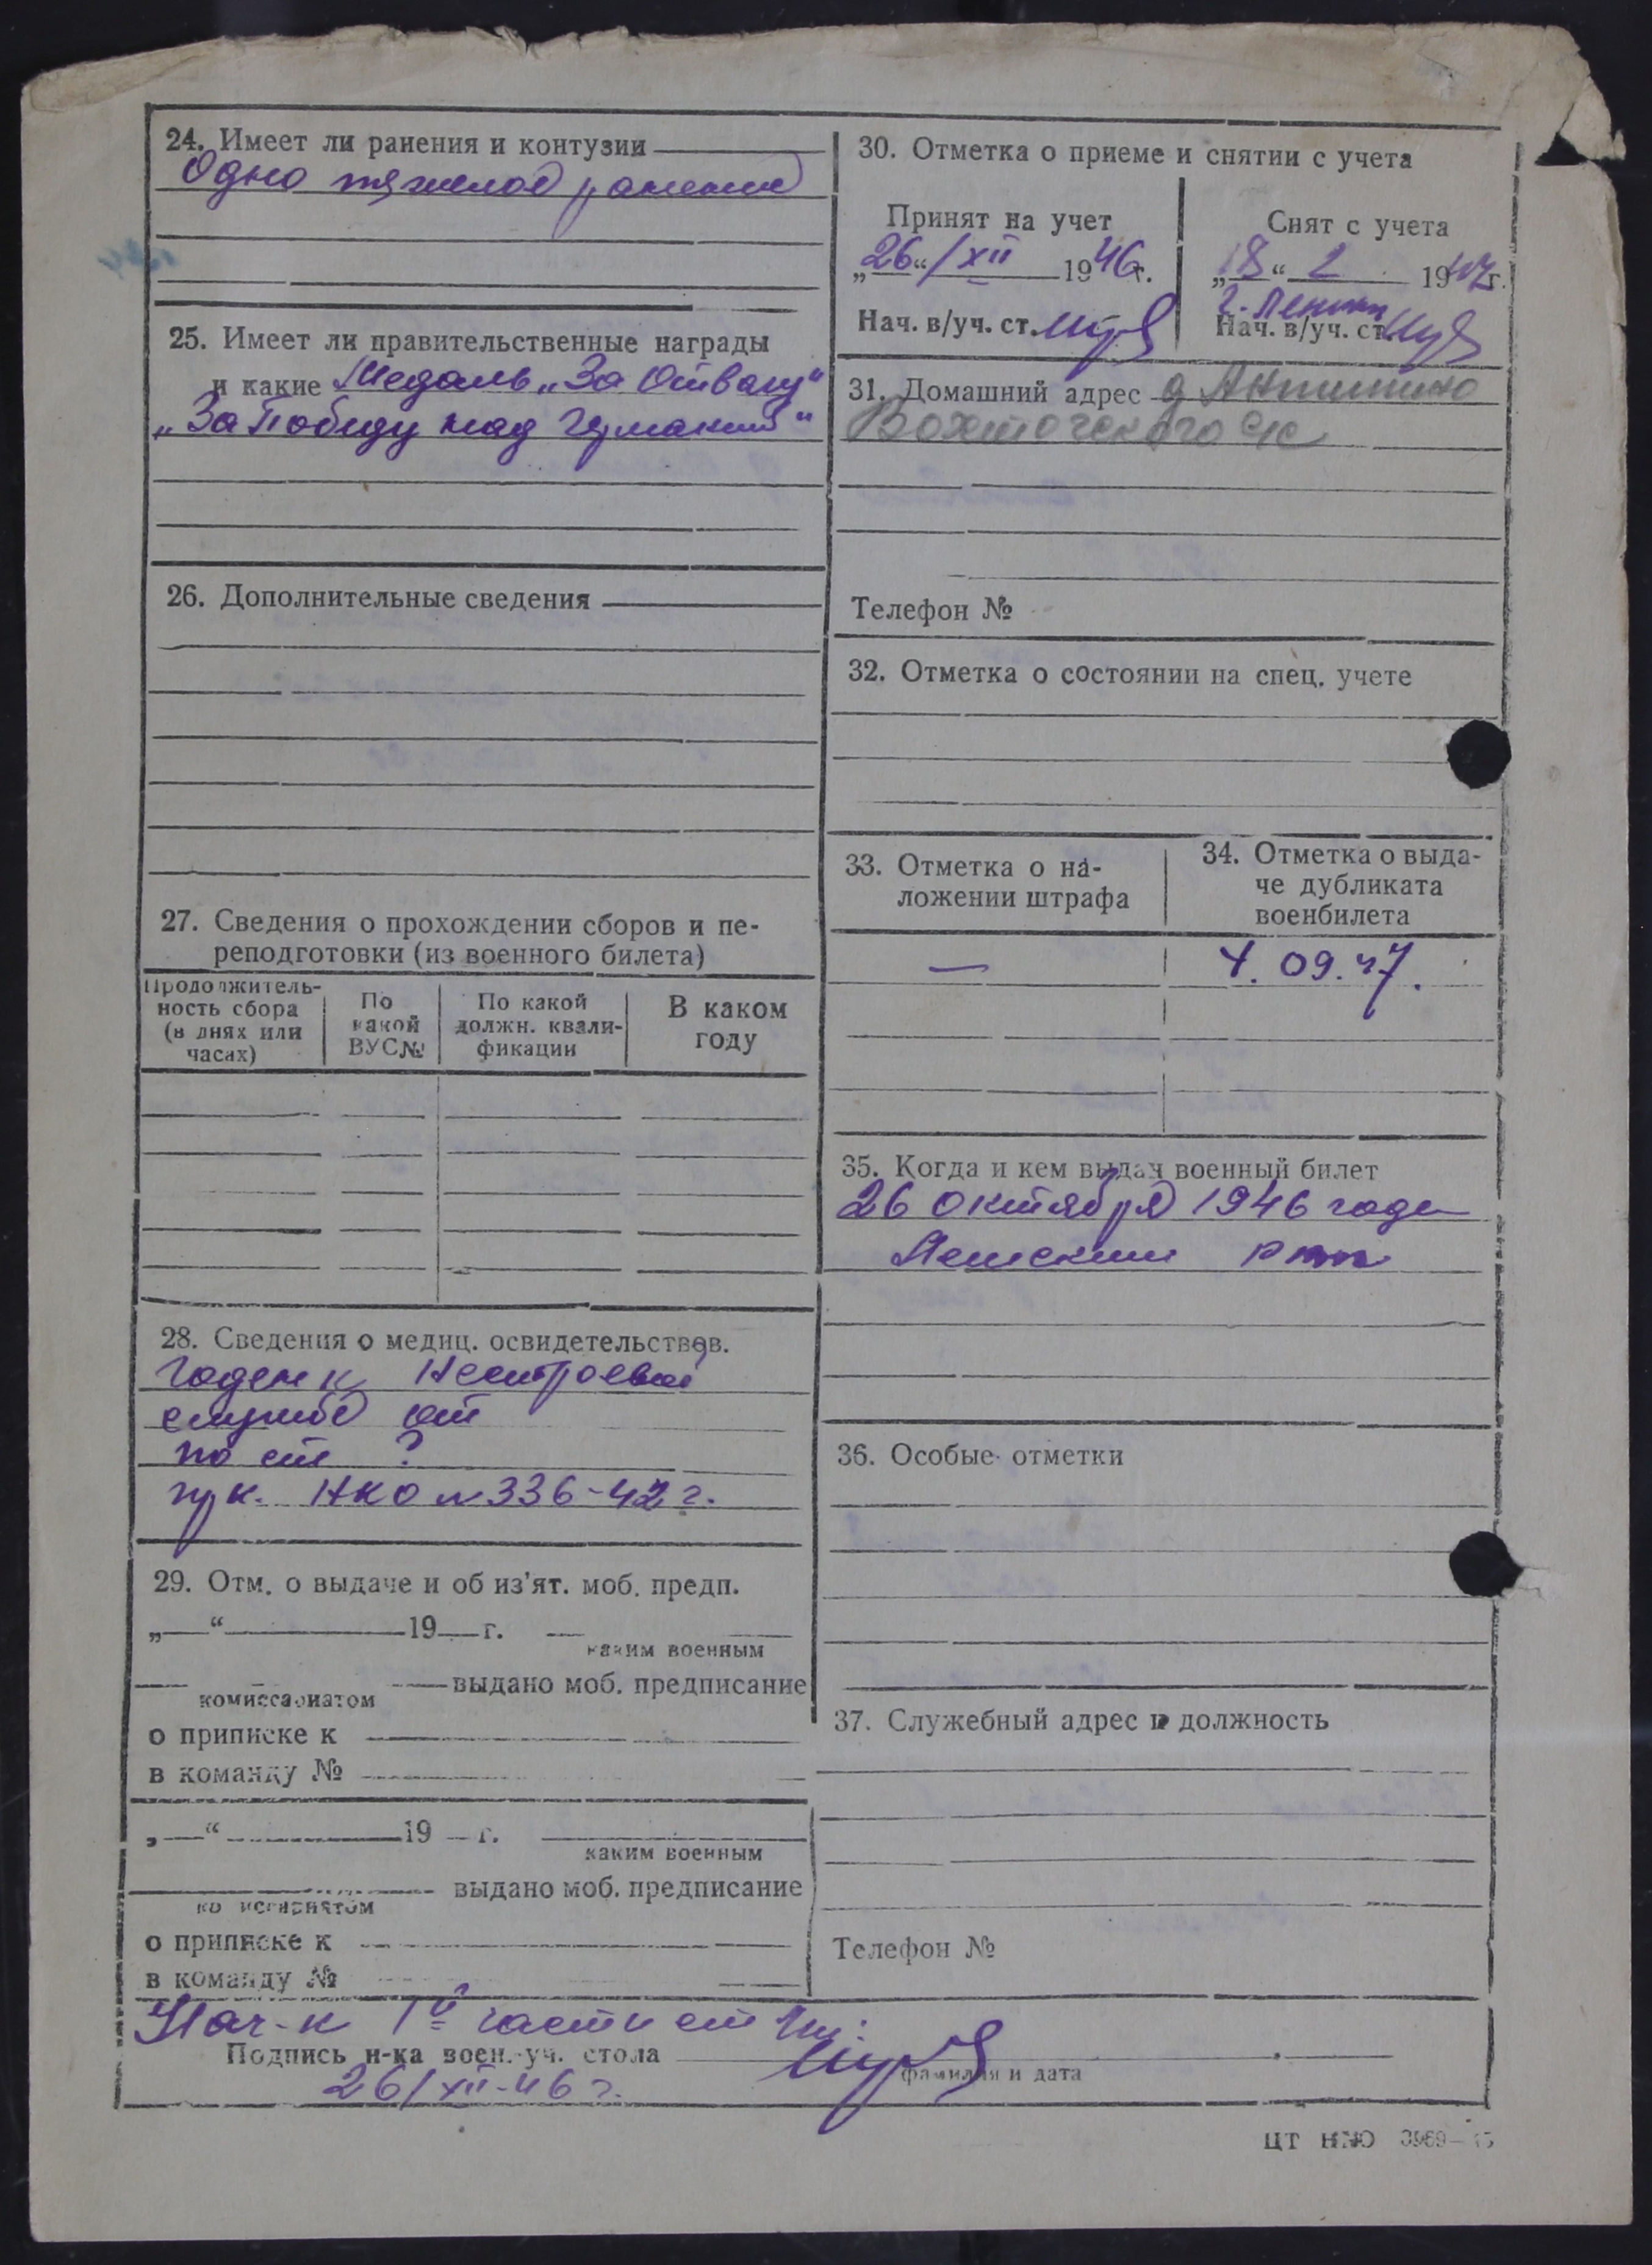 24. Имеет ли ранения и контузии
Одно тяжелое ранение
25. Имеет ли правительственные награды
и какие Медаль „За Отвагу“
„За Победу над Германией“
26. Дополнительные сведения
27. Сведения о прохождении сборов и пе-
реподготовки (из военного билета)
Продолжитель-
ность сбора
(в днях или
часах)
По
какой
ВУС№
По какой
должн. квали-
фикации
В каком
году
28. Сведения о медиц. освидетельствов.
Годен к Нестроевой
службе от
по ст ?
пр к. НКО № 336-42 г.
29. Отм. о выдаче и об из'ят. моб. предп.
„—“ 19 г.
каким военным
комиссариатом
выдано моб. предписание
о приписке к
в команду №
„—“ 19 — г.
каким военным
выдано моб. предписание
комиссариатом
о приписке к
в команду №
30. Отметка о приеме и снятии с учета
Принят на учет
„26“/XII 1946г.
Нач. в/уч. ст.
Снят с учета
„18“ 1947г.
Нач. в/уч. ст.
31. Домашний адрес д Антипино
Вохтогского с/с
Телефон №
32. Отметка о состоянии на спец. учете
33. Отметка о на-
ложении штрафа
—
34. Отметка о выда-
че дубликата
военбилета
4. 09.47.
35. Когда и кем выдан военный билет
26 октября 1946 года
36. Особые отметки
37. Служебный адрес и должность
Телефон №
Нач-к 1й части ст
Подпись н-ка воен.-уч. стола
фамилия и дата
26/XII-46 г.
ЦТ НКО 3969—45